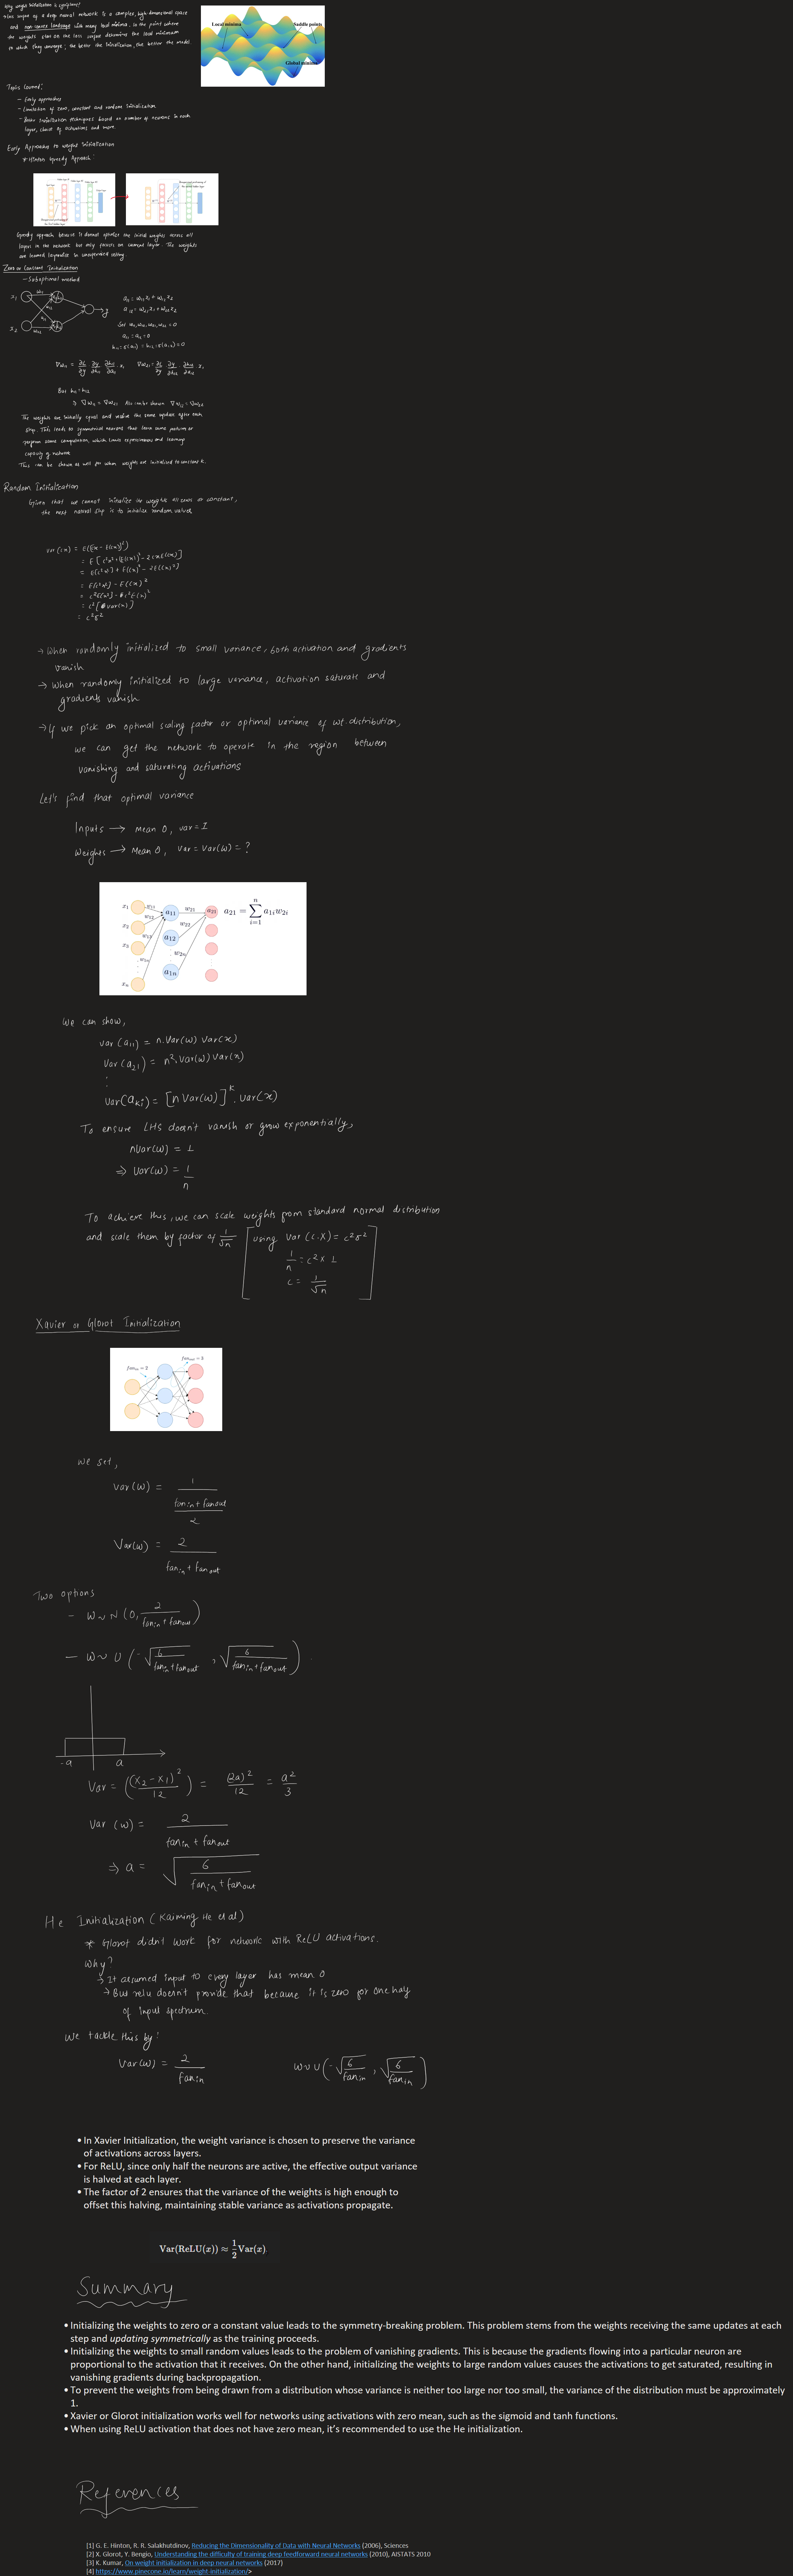 Why weight initialization is important?
Loss layer of a deep neural network is a complex, high dimensional space
and non-convex landscape with many local minima. So the point where
the weights start on the loss surface determines the local minimum
to which they converge; the better the initialization, the better the model.
Local minima
Saddle points
Global minima
Topics Covered:
- Early approaches
- Limitation of zero, constant and random initialization
- Better initialization techniques based on number of neurons in each
layer, choice of activations and more.
Early Approaches to weight initialization
* Hinton's Greedy Approach:
Greedy approach because it doesnot optimize the initial weights across all
layers in the network but only focuses on current layer. The weights
are learned layerwise in unsupervised setting.
Zero or Constant Initialization
- Suboptimal method
x1 w11
x2 w22
y
a11 = w11 x1 + w12 x2
a12 = w21 x1 + w22 x2
Set w11, w12, w21, w22 = 0
a11 = a12 = 0
h11 = σ(a11) = h12 = σ(a12) = 0
∇w11 = ∂L/∂y · ∂y/∂h11 · ∂h11/∂a11 · x1 ∇w21 = ∂L/∂y · ∂y/∂h12 · ∂h12/∂a12 · x1
But h11 = h12
⇒ ∇w11 = ∇w21 Also can be shown ∇w12 = ∇w22
The weights are initially equal and receive the same update after each
step. This leads to symmetrical neurons that learn same patterns or
perform same computation, which limits expressiveness and learning
capacity of network
This can be shown as well for when weights are initialized to constant K.
Random Initialization
Given that we cannot initialize the weights all zeros or constant,
the next natural step is to initialize random values
var (cx) = E((cx - E(cx))²)
= E[c²x² + (E(cx))² - 2cxE(cx)]
= E(c²x²) + E(cx)² - 2E(cx)²
= E[c²x²] - E(cx)²
= c²E[x²] - c²E(x)²
= c²[var(x)]
= c²σ²
→ When randomly initialized to small variance, both activation and gradients
vanish
→ When randomly initialized to large variance, activation saturate and
gradients vanish
→ If we pick an optimal scaling factor or optimal variance of wt. distribution,
we can get the network to operate in the region between
vanishing and saturating activations
Let's find that optimal variance
Inputs → Mean 0, var = 1
Weights → Mean 0, Var = Var(w) = ?
x1 w11 a11 w21 a21
x2 w12 a12 w22
x3 w13
xn w1n a1n w2n
a21 = ∑ⁿᵢ₌₁ a1i w2i
We can show,
var (a11) = n.Var(w) Var(x)
Var (a21) = n².Var(w) Var(x)
⋮
Var(aki) = [n Var(w)]^K . Var(x)
To ensure LHS doesn't vanish or grow exponentially,
nVar(w) = 1
⇒ Var(w) = 1/n
To achieve this, we can scale weights from standard normal distribution
and scale them by factor of 1/√n
using Var (c.X) = c²σ²
1/n = c² x 1
c = 1/√n
Xavier or Glorot Initialization
fan_in = 2
fan_out = 3
We set,
Var (w) = 1/((fan_in + fan_out)/2)
Var(w) = 2/(fan_in + fan_out)
Two options
- W ~ N (0, 2/(fan_in + fan_out))
- W ~ U (-√(6/(fan_in + fan_out)), √(6/(fan_in + fan_out)))
-a a
Var = ((x2 - x1)²/12) = (2a)²/12 = a²/3
Var (w) = 2/(fan_in + fan_out)
⇒ a = √(6/(fan_in + fan_out))
He Initialization (Kaiming He et al)
* Glorot didn't work for network with ReLU activations.
Why?
→ It assumed input to every layer has mean 0
→ But relu doesn't provide that because it is zero for one half
of input spectrum.
We tackle this by:
Var(w) = 2/fan_in W ~ U (-√(6/fan_in), √(6/fan_in))
• In Xavier Initialization, the weight variance is chosen to preserve the variance
of activations across layers.
• For ReLU, since only half the neurons are active, the effective output variance
is halved at each layer.
• The factor of 2 ensures that the variance of the weights is high enough to
offset this halving, maintaining stable variance as activations propagate.
Var(ReLU(x)) ≈ 1/2 Var(x)
Summary
• Initializing the weights to zero or a constant value leads to the symmetry-breaking problem. This problem stems from the weights receiving the same updates at each
step and updating symmetrically as the training proceeds.
• Initializing the weights to small random values leads to the problem of vanishing gradients. This is because the gradients flowing into a particular neuron are
proportional to the activation that it receives. On the other hand, initializing the weights to large random values causes the activations to get saturated, resulting in
vanishing gradients during backpropagation.
• To prevent the weights from being drawn from a distribution whose variance is neither too large nor too small, the variance of the distribution must be approximately
1.
• Xavier or Glorot initialization works well for networks using activations with zero mean, such as the sigmoid and tanh functions.
• When using ReLU activation that does not have zero mean, it's recommended to use the He initialization.
References
[1] G. E. Hinton, R. R. Salakhutdinov, Reducing the Dimensionality of Data with Neural Networks (2006), Sciences
[2] X. Glorot, Y. Bengio, Understanding the difficulty of training deep feedforward neural networks (2010), AISTATS 2010
[3] K. Kumar, On weight initialization in deep neural networks (2017)
[4] https://www.pinecone.io/learn/weight-initialization/>